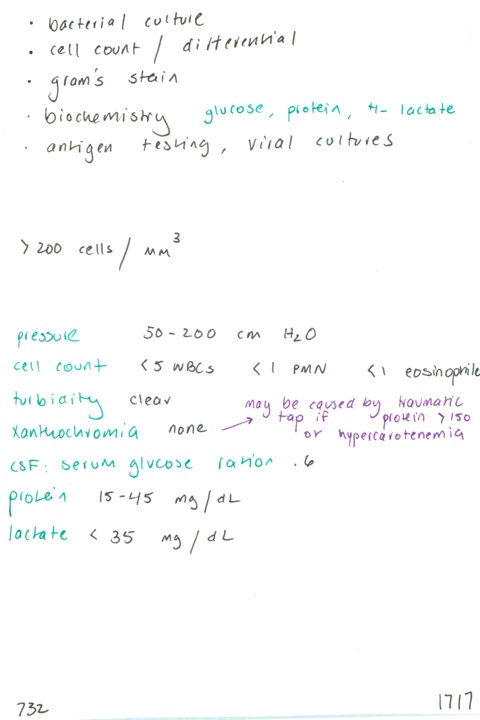 · bacterial culture
· cell count / differential
· gram's stain
· biochemistry glucose, protein, +/- lactate
· antigen testing, viral cultures
> 200 cells / mm³
pressure 50-200 cm H₂O
cell count < 5 WBCs < 1 PMN < 1 eosinophile
turbidity clear
may be caused by traumatic
xanthochromia none → tap if protein > 150
or hypercarotenemia
CSF: serum glucose ration .6
protein 15-45 mg/dL
lactate < 35 mg/dL
732 1717